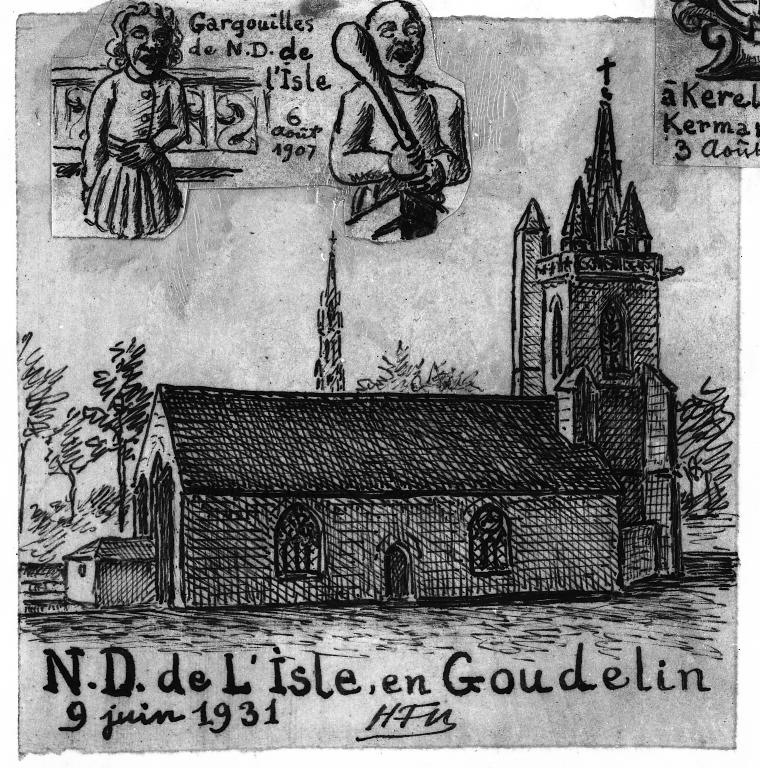 Gargouilles
de N.D. de
l'Isle
6
août
1907
à Kerel
Kerma
3 Août
N.D. de L'Isle, en Goudelin
9 juin 1931